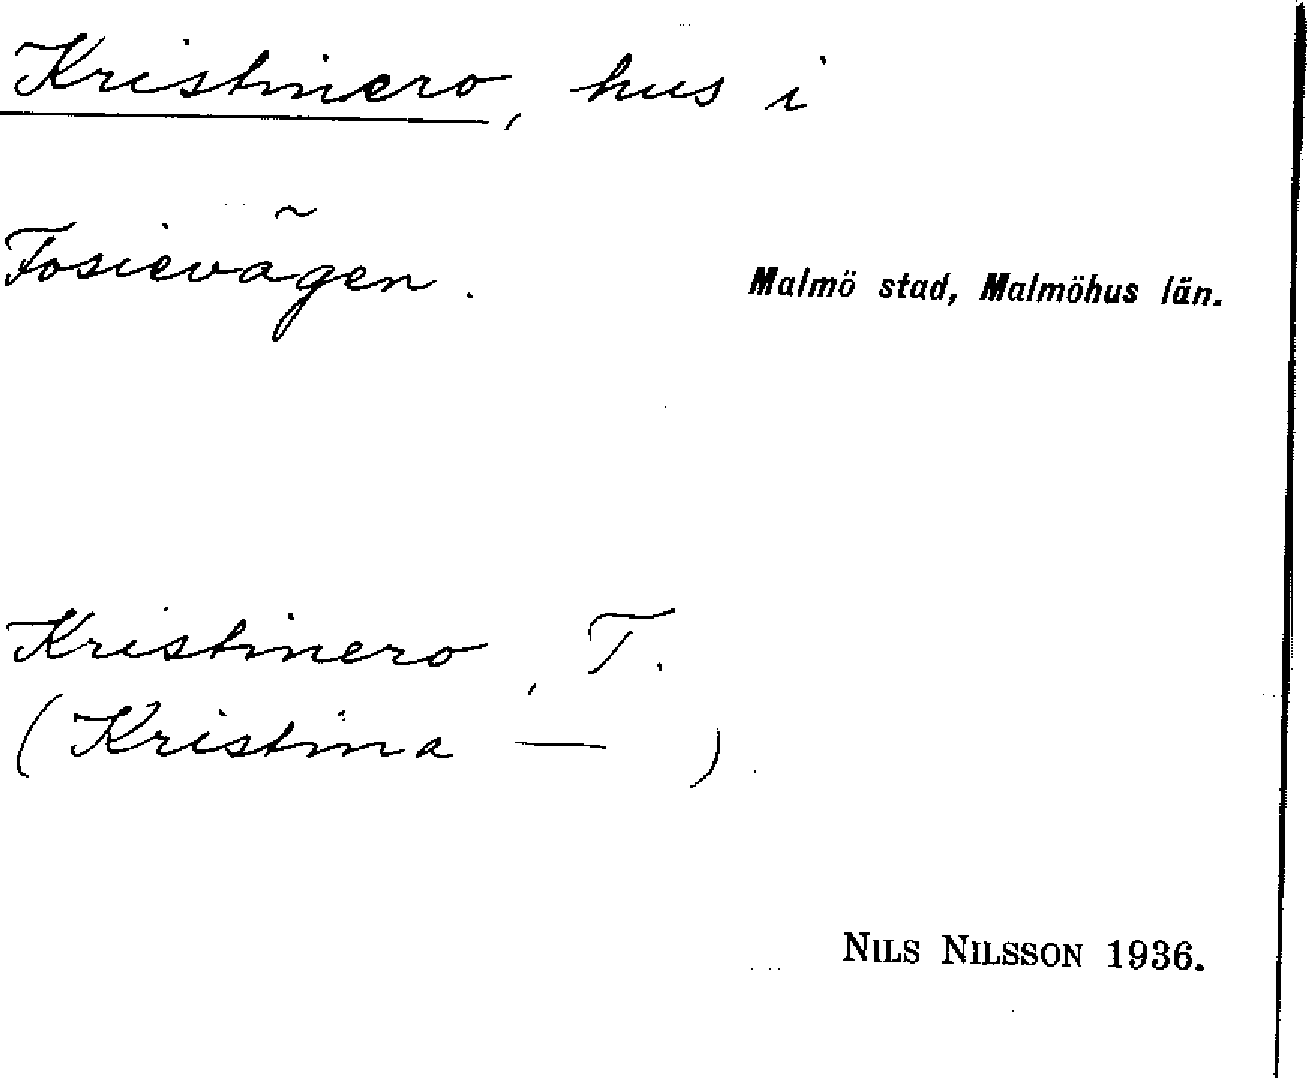 Kristinero, hus i
Fosievägen.
Malmö stad, Malmöhus län.
Kristinero, T.
(Kristina — )
NILS NILSSON 1936.